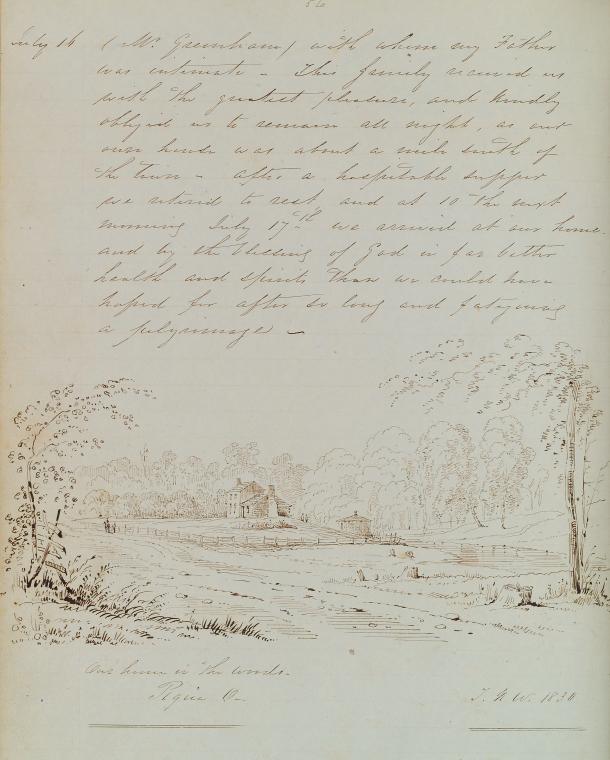 56
July 16 (Mr. Greenham) with whom my Father
was intimate - This family received us
with the greatest pleasure, and kindly
obliged us to remain all night, as our
own house was about a mile south of
the town - after a hospitable supper
we retired to rest and at 10 the next
morning July 17th we arrived at our home
and by the blessing of God in far better
health and spirits than we could have
hoped for after so long and fatiguing
a pilgrimage -
Our home in the woods.
Piqua O-
T. K. W. 183